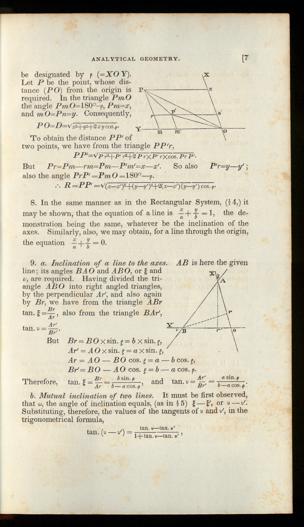 ANALYTICAL GEOMETRY. [7
be designated by ϙ (=XOY).
Let P be the point, whose dis-
tance (PO) from the origin is
required. In the triangle PmO
the angle PmO=180°-ϙ, Pm=x,
and mO=Pn=y. Consequently,
PO=D=√x²+y²+2xy cos.ϙ.
To obtain the distance PP′ of
two points, we have from the triangle PP′r,
PP′=√Pr²+P′r²±2Pr×P′r×cos.PrP′.
But Pr=Pm—rm=Pm—P′m′=x—x′. So also P′r=y—y′;
also the angle PrP′=PmO=180°—ϙ.
∴ R=PP′=√(x—x′)²+(y—y′)²+2(x—x′)(y—y′) cos.ϙ.
8. In the same manner as in the Rectangular System, (§4,) it
may be shown, that the equation of a line is x/a + y/b = 1, the de-
monstration being the same, whatever be the inclination of the
axes. Similarly, also, we may obtain, for a line through the origin,
the equation x/a + y/b = 0.
9. a. Inclination of a line to the axes. AB is here the given
line; its angles BAO and ABO, or ξ and
υ, are required. Having divided the tri-
angle ABO into right angled triangles,
by the perpendicular Ar′, and also again
by Br, we have from the triangle ABr
tan. ξ = Br/Ar, also from the triangle BAr′,
tan. υ = Ar′/Br′.
But Br = BO × sin. ξ = b × sin. ξ,
Ar′ = AO × sin. ξ = a × sin. ξ,
Ar = AO — BO cos. ξ = a — b cos. ξ,
Br′ = BO — AO cos. ξ = b — a cos. ξ.
Therefore, tan. ξ = Br/Ar = b sin. ϙ/b—a cos.ϙ, and tan. υ = Ar′/Br′ = a sin. ϙ/b—a cos.ϙ.
b. Mutual inclination of two lines. It must be first observed,
that ω, the angle of inclination equals, (as in §5) ξ—ξ′, or υ—υ′.
Substituting, therefore, the values of the tangents of υ and υ′, in the
trigonometrical formula,
tan. (υ — υ′) = tan. υ—tan. υ′/1+tan. υ—tan. υ′,